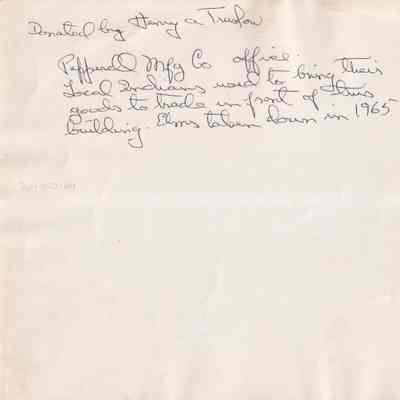 Donated by Henry A Truslow
Pepperell Mfg Co office.
Local Indians used to bring their
goods to trade in front of this
building. Elms taken down in 1965